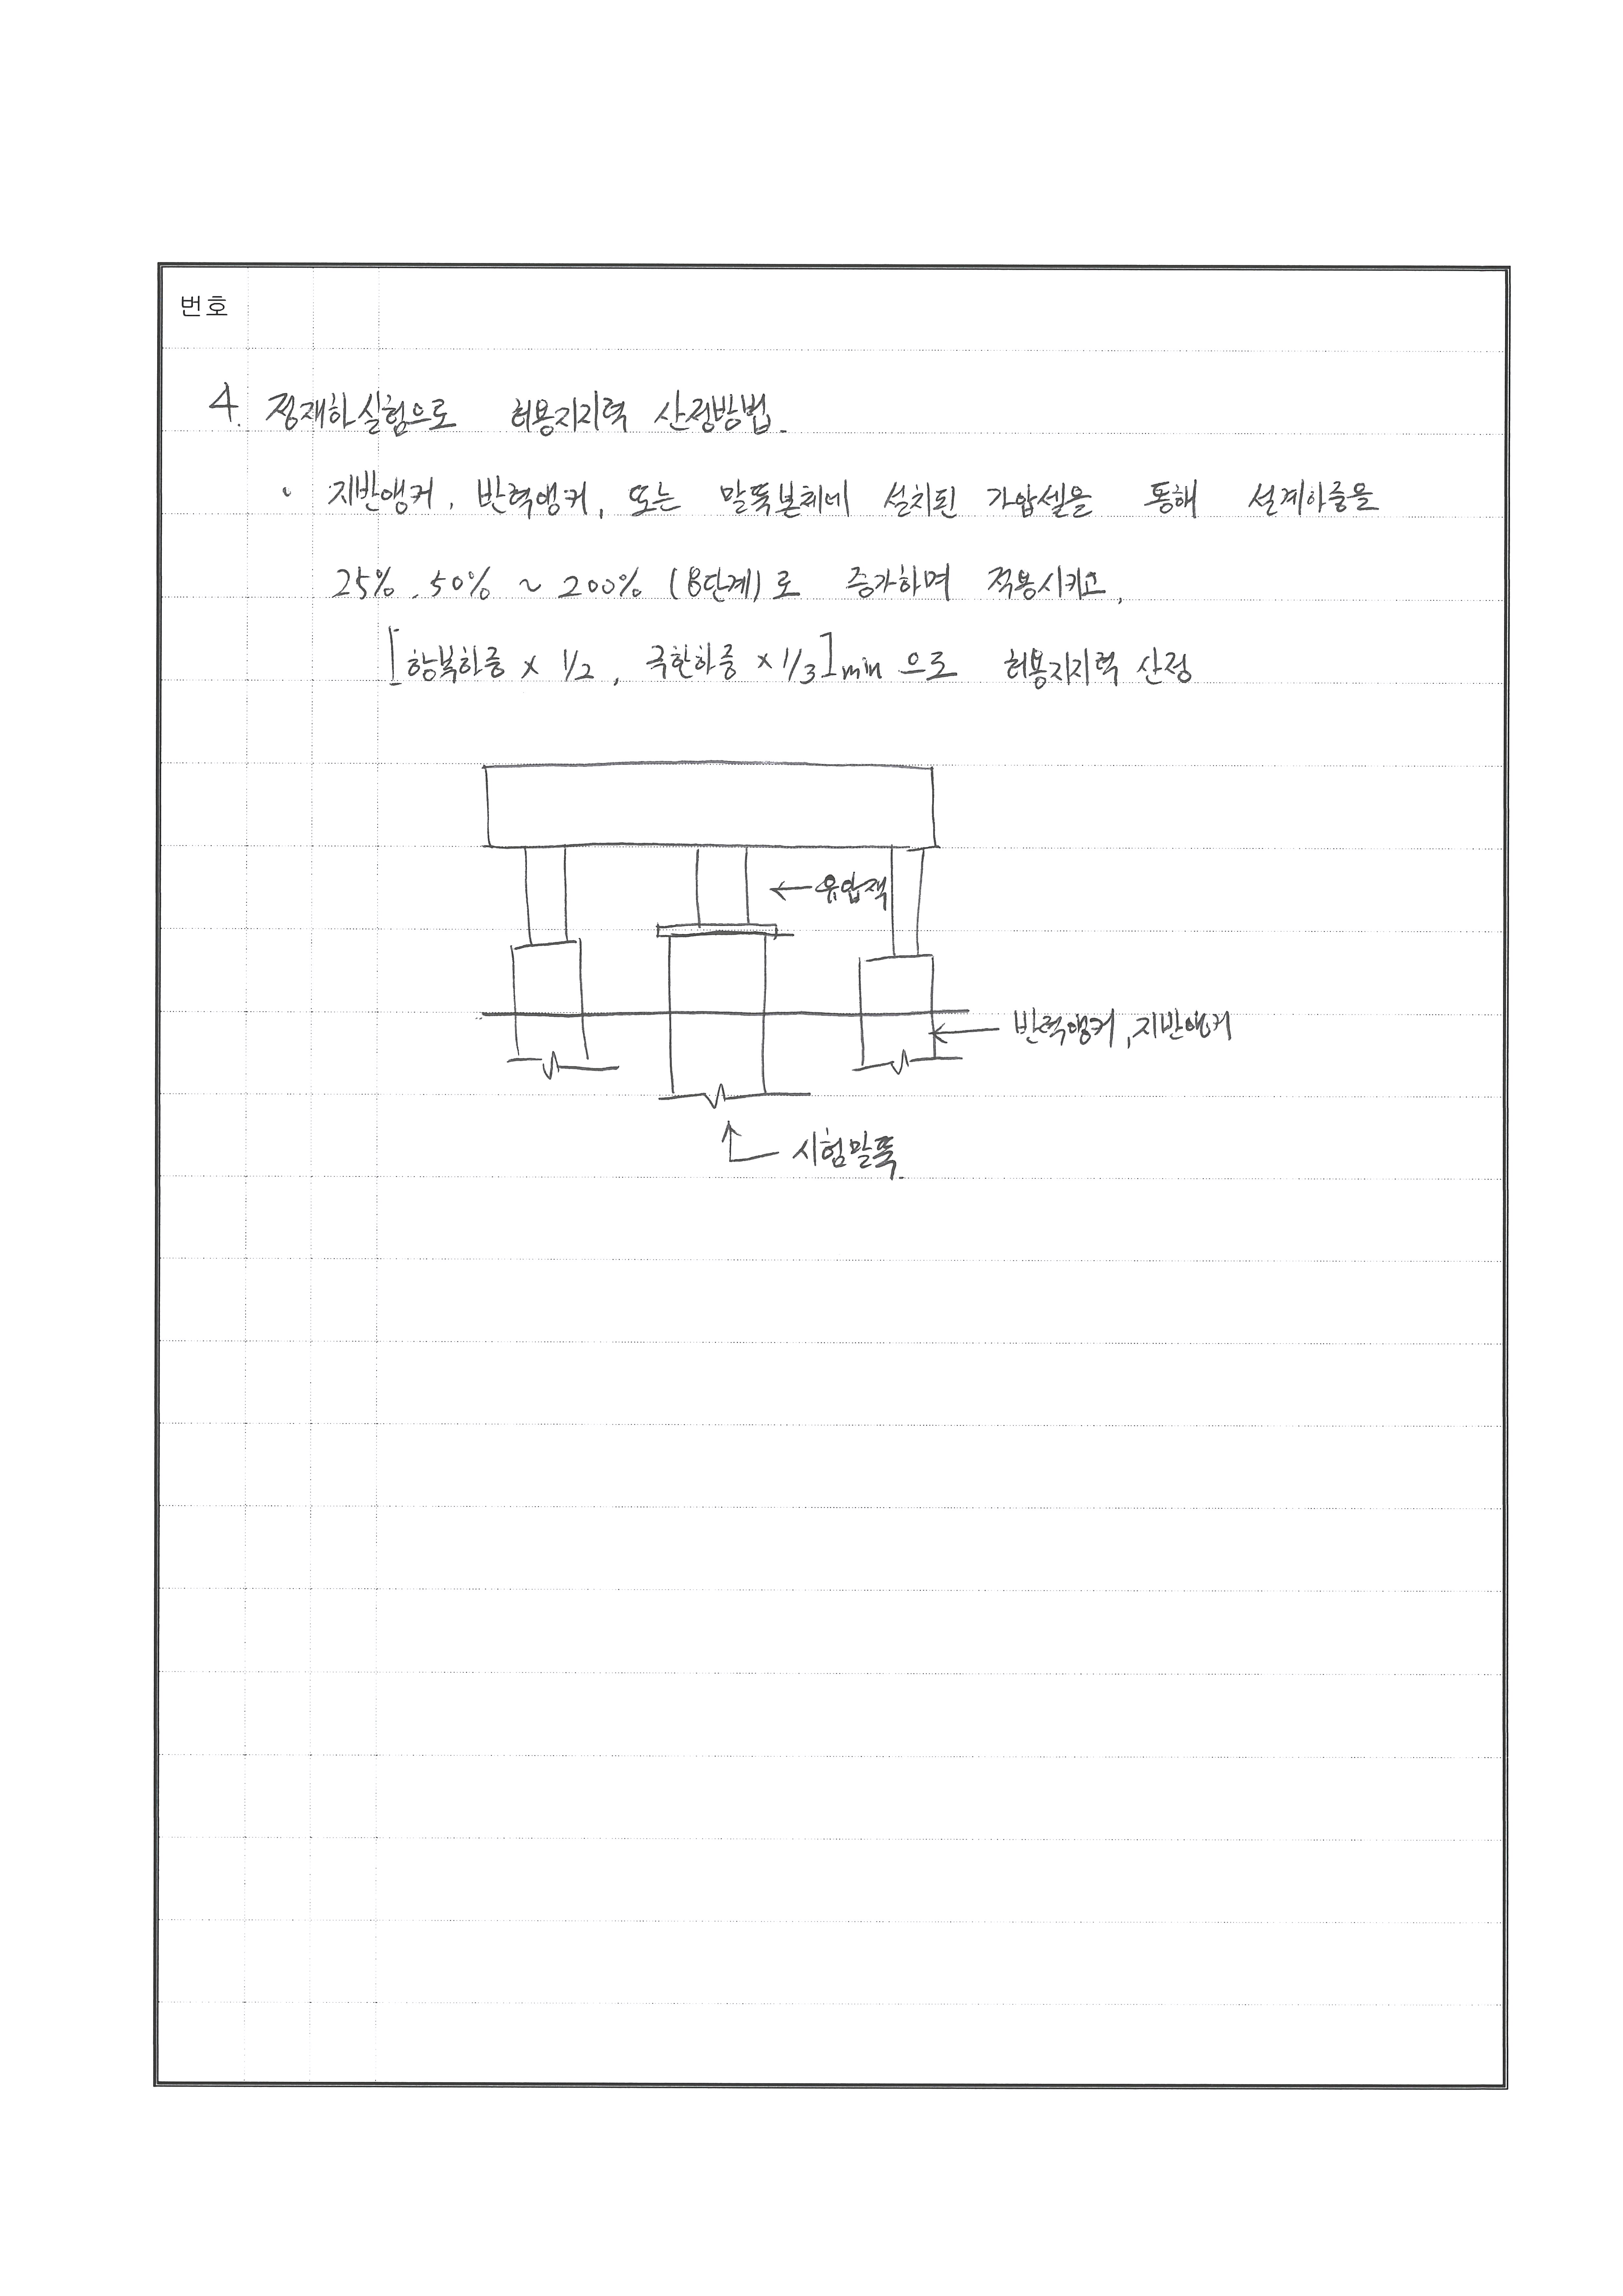 번호
4. 정재하실험으로 허용지지력 산정방법.
• 지반앵커, 반력앵커, 또는 말뚝본체에 설치된 가압셀을 통해 설계하중을
25%, 50% ~ 200% (8단계)로 증가하며 적용시키고,
[항복하중 × 1/2, 극한하중 × 1/3]min 으로 허용지지력 산정
← 유압잭
← 반력앵커, 지반앵커
시험말뚝.